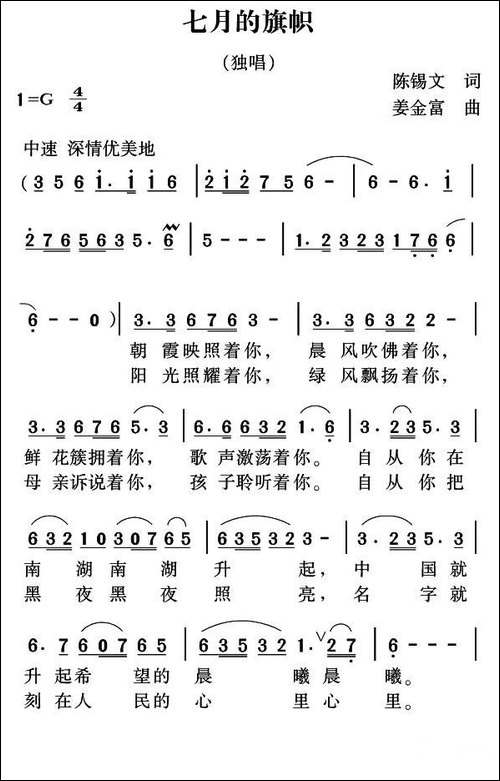 七月的旗帜
（独唱）
陈锡文 词
1=G 4/4
姜金富 曲
中速 深情优美地
(3 5 6 1. 1 1 6 | 2 1 2 7 5 | 6 - | 6 - 6. 1 |
2 7 6 5 6 3 5. 6 | 5 - - - | 1. 2 3 2 3 1 7 6 | 6
6 - - 0 ) | 3. 3 6 7 6 3 - | 3. 3 6 3 2 2 - |
朝 霞映照着你， 晨 风吹佛着你，
阳 光照耀着你， 绿 风飘扬着你，
3. 3 6 7 6 5. 3 | 6. 6 6 3 2 1. 6 | 3. 2 3 5. 3 |
鲜 花簇拥着你， 歌 声激荡着你。 自 从 你 在
母 亲诉说着你， 孩 子聆听着你。 自 从 你 把
6 3 2 1 0 3 0 7 6 5 | 6 3 5 3 2 3 - | 3. 2 3 5. 3 |
南 湖 南 湖 升 起， 中 国 就
黑 夜 黑 夜 照 亮， 名 字 就
6. 7 6 0 7 6 5 | 6 3 5 3 2 1. V 2 7 | 6 - - - |
升 起希 望的 晨 曦 晨 曦。
刻 在人 民的 心 里 心 里。